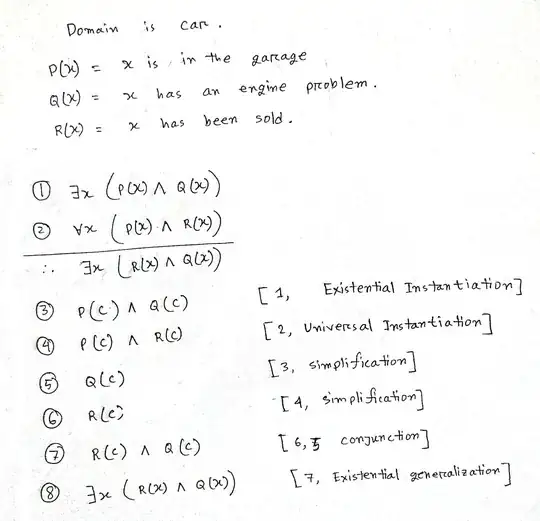 Domain is car.
P(x) = x is in the garage
Q(x) = x has an engine problem.
R(x) = x has been sold.
① ∃x (P(x) ∧ Q(x))
② ∀x (P(x) ∧ R(x))
∴ ∃x (R(x) ∧ Q(x))
③ P(c) ∧ Q(c) [1, Existential Instantiation]
④ P(c) ∧ R(c) [2, Universal Instantiation]
⑤ Q(c) [3, simplification]
⑥ R(c) [4, simplification]
⑦ R(c) ∧ Q(c) [6,5 conjunction]
⑧ ∃x (R(x) ∧ Q(x)) [7, Existential generalization]